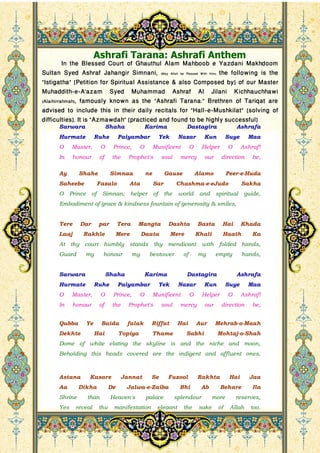 Ashrafi Tarana: Ashrafi Anthem
In the Blessed Court of Ghauthul Alam Mahboob e Yazdani Makhdoom
Sultan Syed Ashraf Jahangir Simnani, (May Allah be Pleased With Him), the following is the
"Istigatha" (Petition for Spiritual Assistance & also Composed by) of our Master
Muhaddith-e-A'azam Syed Muhammad Ashraf Al Jilani Kichhauchhawi
(Alaihirrahmah), famously known as the "Ashrafi Tarana." Brethren of Tariqat are
advised to include this in their daily recitals for "Hall-e-Mushkilat" (solving of
difficulties). It is "Azmawdah" (practiced and found to be highly successful)
Sarwara Shaha Karima Dastagira Ashrafa
Hurmate Ruhe Paiyambar Yek Nazar Kun Suye Maa
O Master, O Prince, O Munificent O Helper O Ashraf!
In honour of the Prophet's soul mercy our direction be,
Ay Shahe Simnaa ne Gause Alame Peer-e-Huda
Saheebe Fazalo Ata Sar Chashma-e-eJudo Sakha
O Prince of Simnan; helper of the world and spiritual guide,
Embodiment of grace & kindness fountain of generosity & smiles,
Tere Dar par Tera Mangta Dashta Basta Hai Khada
Laaj Rakhle Mere Daata Mere Khali Haath Ka
At thy court humbly stands thy mendicant with folded hands,
Guard my honour my bestower of my empty hands,
Sarwara Shaha Karima Dastagira Ashrafa
Hurmate Ruhe Paiyambar Yek Nazar Kun Suye Maa
O Master, O Prince, O Munificent O Helper O Ashraf!
In honour of the Prophet's soul mercy our direction be,
Qubba Ye Baida falak Riffat Hai Aur Mehrab-e-Maah
Dekhte Hai Tapiya Thame Sabhi Mohtaj-o-Shah
Dome of white elating the skyline is and the niche and moon,
Beholding this heads covered are the indigent and affluent ones,
Astana Kasare Jannat Se Fuzool Rakhta Hai Jaa
Aa Dikha De Jalwa-e-Zaiba Bhi Ab Behare Ila
Shrine than Heaven's palace splendour more reserves,
Yes reveal thy manifestation elegant the sake of Allah too.